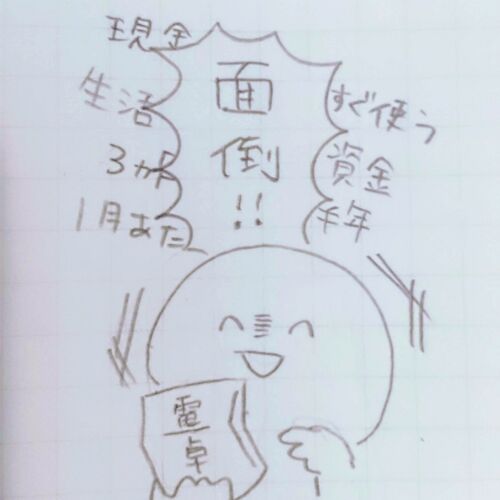 現金
生活
3か月
1月あた
面倒!!
すぐ使う
資金
半年
電卓